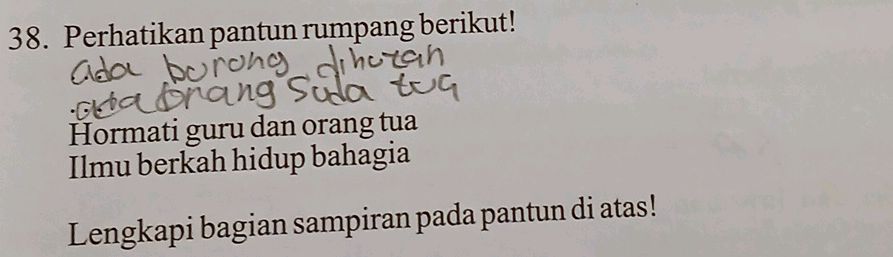 38. Perhatikan pantun rumpang berikut!
ada borong dihutan
ada orang suda tua
Hormati guru dan orang tua
Ilmu berkah hidup bahagia
Lengkapi bagian sampiran pada pantun di atas!